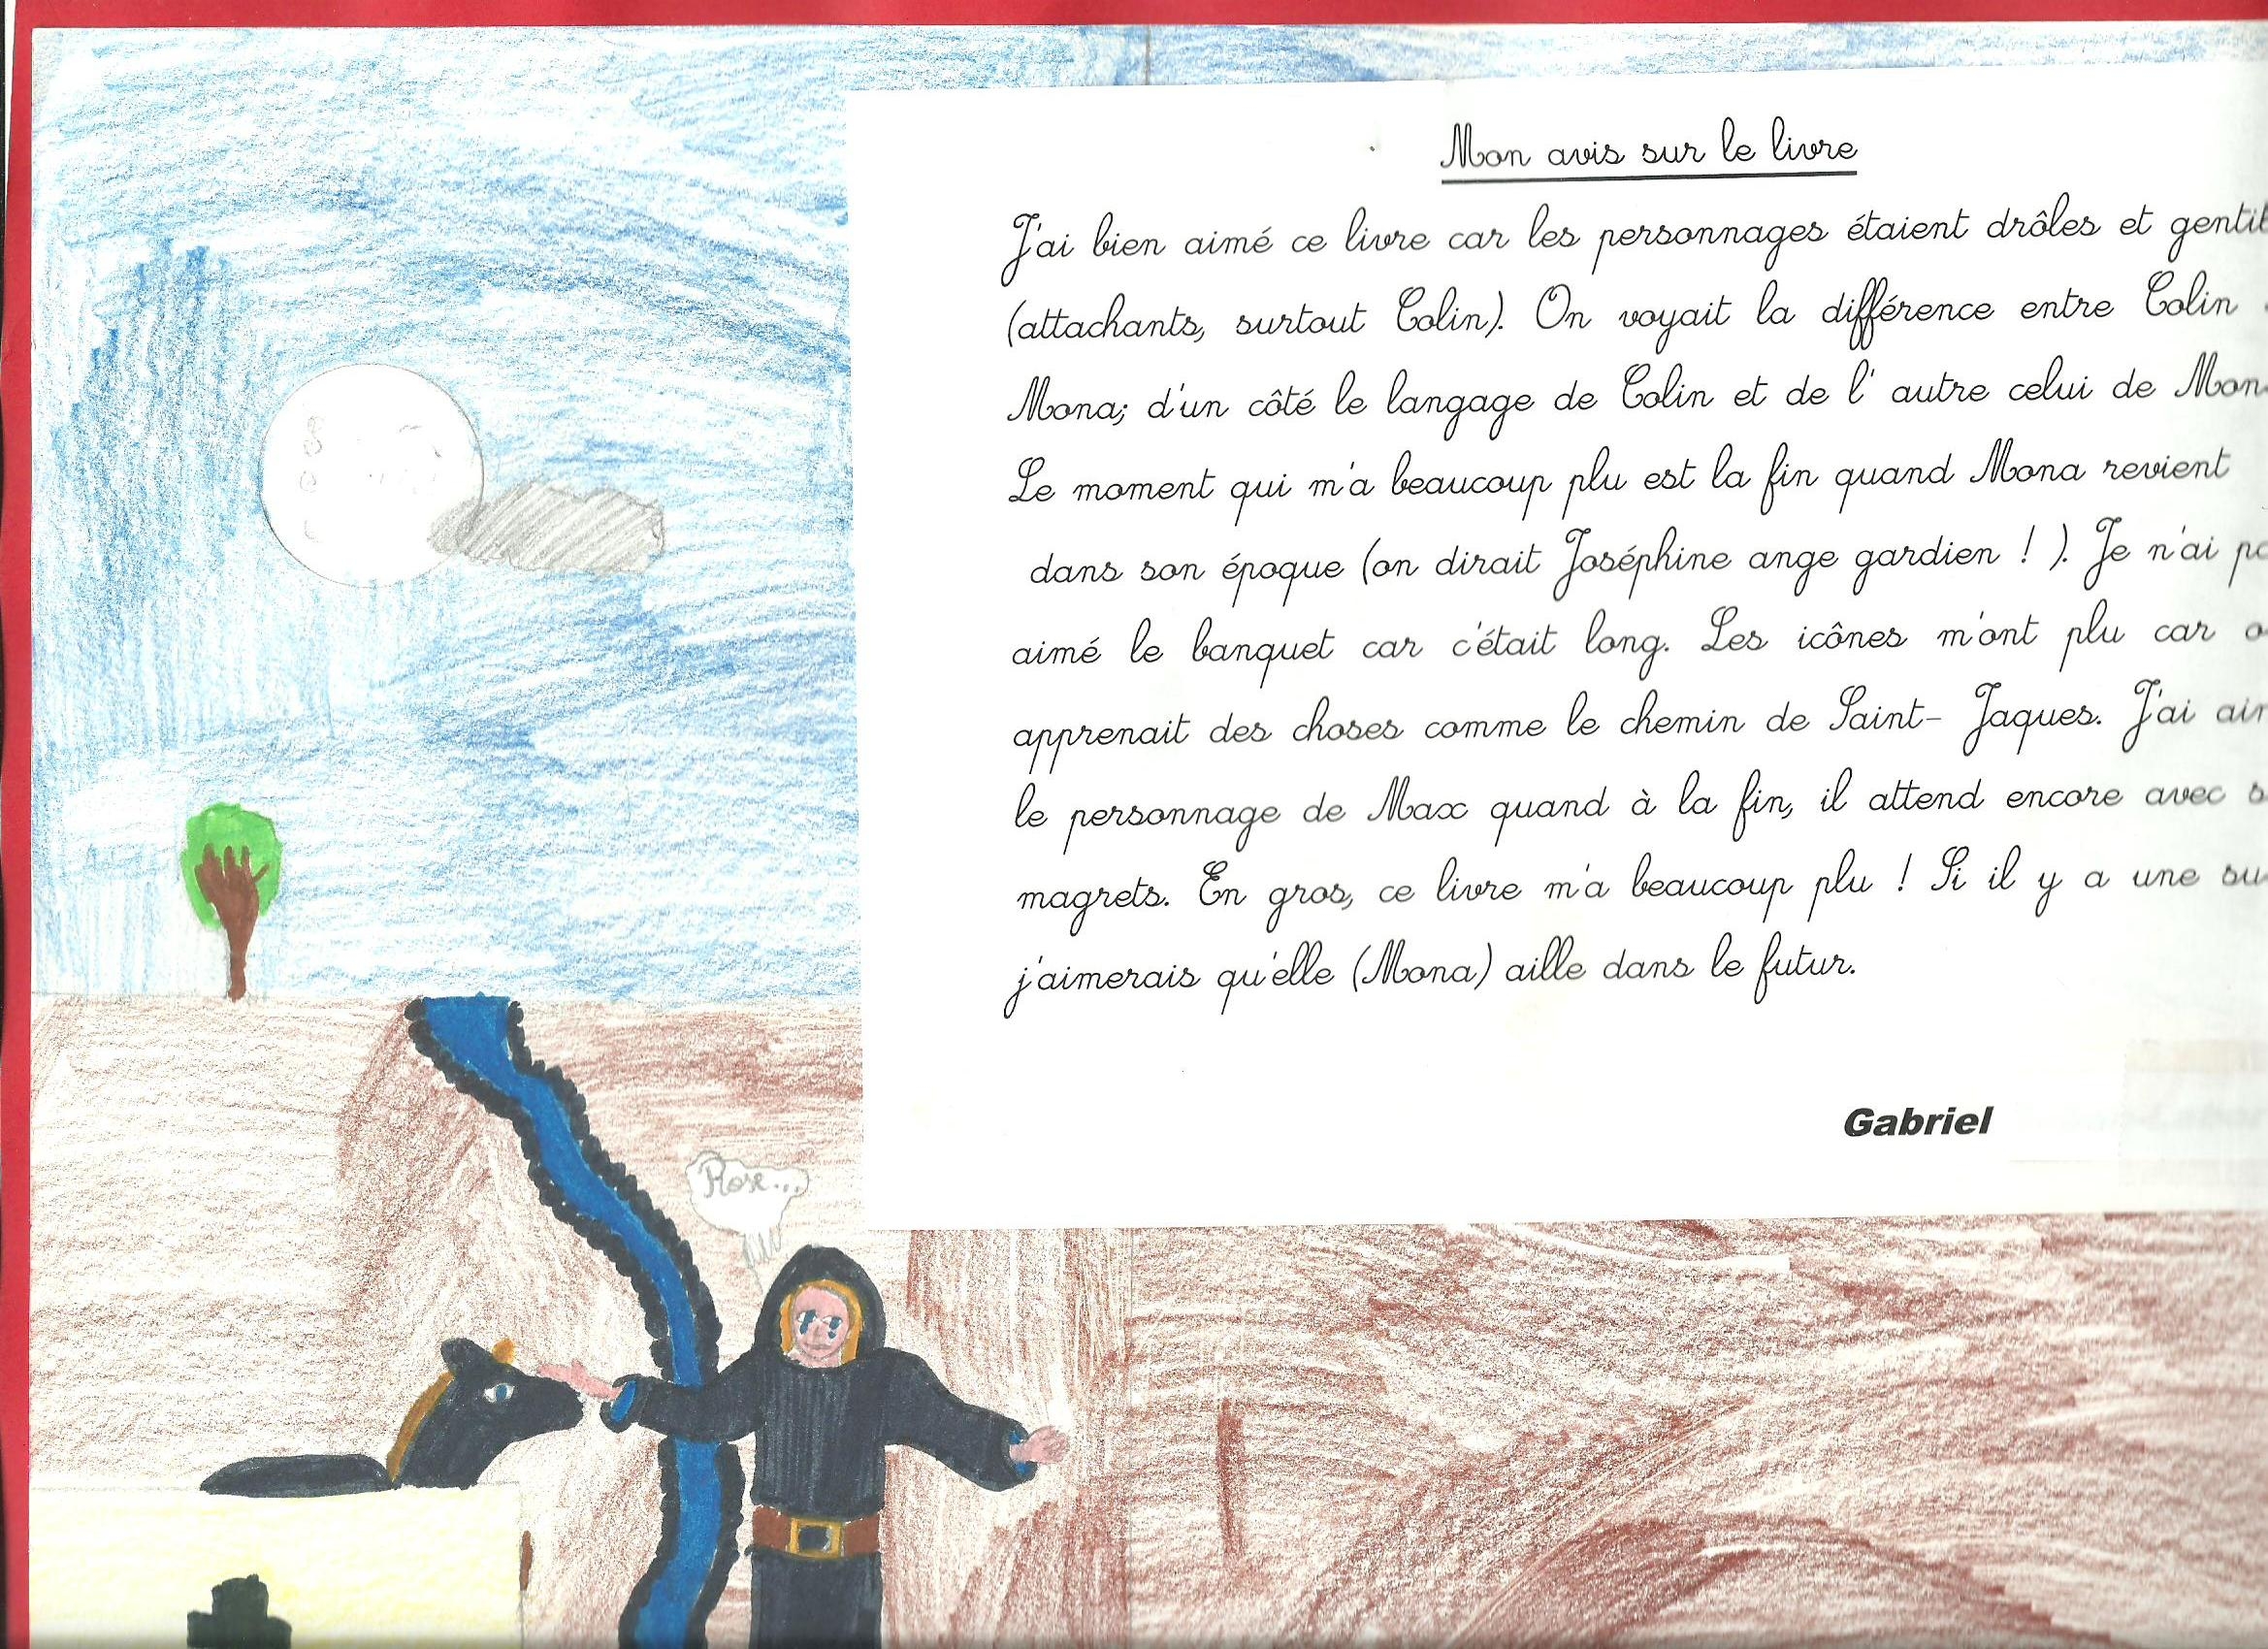 Mon avis sur le livre
J'ai bien aimé ce livre car les personnages étaient drôles et gentil
(attachants, surtout Colin). On voyait la différence entre Colin
Mona; d'un côté le langage de Colin et de l' autre celui de Mon
Le moment qui m'a beaucoup plu est la fin quand Mona revient
dans son époque (on dirait Joséphine ange gardien ! ). Je n'ai pa
aimé le banquet car c'était long. Les icônes m'ont plu car o
apprenait des choses comme le chemin de Saint- Jaques. J'ai aim
le personnage de Max quand à la fin, il attend encore avec s
magrets. En gros, ce livre m'a beaucoup plu ! Si il y a une su
j'aimerais qu'elle (Mona) aille dans le futur.
Gabriel
Rose...